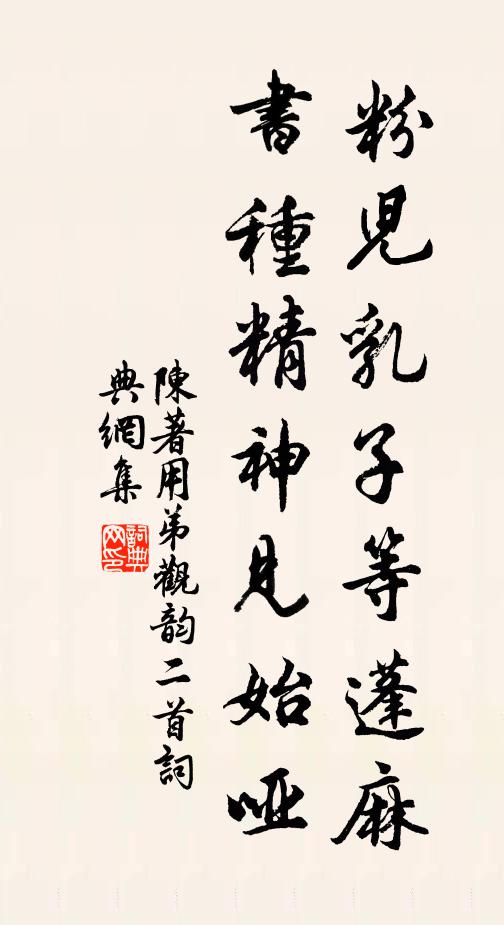 粉児乳子等蓬麻
書種精神見始啞
陳著用弟觀韵二首詞
典網集
詞典網印